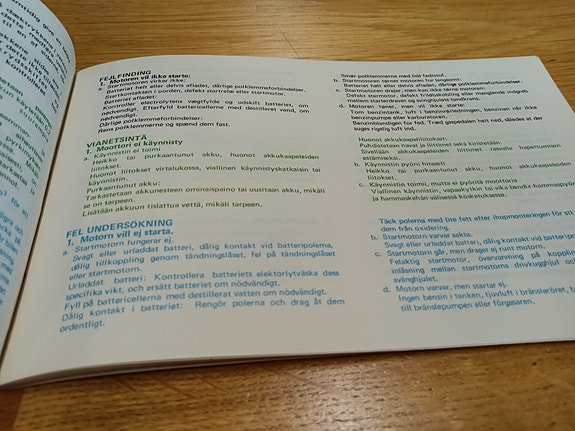 FEJLFINDING
1. Motoren vil ikke starte:
a. Startmotoren virker ikke:
Batteriet helt eller delvis afladet, dårlige polklemmeforbindelser.
Startkontakten i uorden, defekt startrelæ eller startmotor.
Batteriet afladet:
Kontroller electrolytens vægtfylde og udskift batteriet, om
nødvendigt. Efterfyld battericellerne med destilleret vand, om
nødvendigt.
Dårlige polklemmeforbindelser:
Rens polklemmerne og spænd dem fast.
Smør polklemmerne med lidt fedtstof.
b. Startmotoren tørner motoren for langsomt.
Batteriet helt eller delvis afladet, dårlige polklemmeforbindelser.
c. Startmotoren drejer, men kan ikke tørne motoren:
Defekt startmotor, defekt frikobling eller manglende indgreb
mellem starterdrevet og svinghjulets tandkrans.
d. Motoren tørner, men vil ikke starte:
Tom benzintank, luft i brændstofledningen, benzinen når ikke
benzinpumpe eller karburatoren.
Benzintandingen for fed. Træd gaspedalen helt ned, således at der
suges rigelig luft ind.
VIANETSINTÄ
1. Moottori ei käynnisty
a. Käynnistin ei toimi
Heikko tai purkaantunut akku, huonot akkukaapeleiden
liitokset.
Huonot liitokset virtalukossa, viallinen käynnistyskatkaisin tai
käynnistin.
Purkaantunut akku:
Tarkastetaan akkunesteen ominaispaino tai uusitaan akku, mikäli
se on tarpeen.
Lisätään akkuun tislattua vettä, mikäli tarpeen.
Huonot akkukaapeliliitokset:
Puhdistetaan navat ja liittimet sekä kiristetään.
Sivellään akkukaapeleiden liittimet rasvalla hapettumisen
estämiseksi.
b. Käynnistin pyörii hitaasti
Heikko tai purkaantunut akku, huonot akkukaapeleiden
liitokset.
c. Käynnistin toimii, mutta ei pyöritä moottoria
Viallinen käynnistin, vapaakytkin tai vika bendix-hammaspyörän
ja hammaskehän välisessä kosketuksessa.
FEL UNDERSÖKNING
1. Motorn vill ej starta.
a. Startmotorn fungerar ej.
Svagt eller urladdat batteri, dålig kontakt vid batteripolerna,
dålig tillkoppling genom tändningslåset, fel på tändningslåset
eller startmotorn.
Urladdat batteri: Kontrollera batteriets elektorlytväska dess
specifika vikt, och ersätt batteriet om nödvändigt.
Fyll på battericellerna med destillerat vatten om nödvändigt.
Dålig kontakt i batteriet: Rengör polerna och drag åt dem
ordentligt.
Täck polerna med lite fett efter ihopmonteringen för att
dem från oxidering.
b. Startmotorn varvar sakta.
Svagt eller urladdat batteri, dålig kontakt vid batteripo
c. Startmotorn går, men drager ej runt motorn.
Felaktig startmotor, övervarvning på kopplin
inlåsning mellan startmotorns drivkugghjul och
svänghjulet.
d. Motorn varvar, men startar ej.
Ingen bensin i tanken, tjuvluft i bränsleröret, b
till bränslepumpen eller förgasaren.